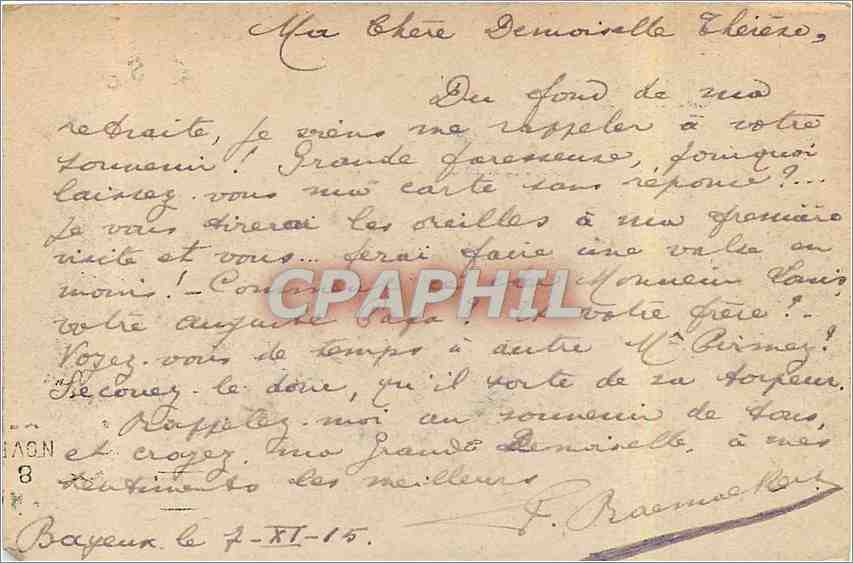 Ma Chère Demoiselle Thérèse,
Du fond de ma
retraite, je viens me rappeler à votre
souvenir! Grande paresseuse, pourquoi
laissez-vous ma carte sans réponse?...
Je vous tirerai les oreilles à ma première
visite et vous... ferai faire une valse en
moins! - Monsieur Louis,
votre auguste Papa? et votre frère? -
Voyez-vous de temps à autre Mr Pirmez?
Secouez-le donc, qu'il sorte de sa torpeur.
Rappelez-moi au souvenir de tous,
et croyez, ma Grande Demoiselle, à mes
sentiments les meilleurs
Bayeux le 7-XI-15.
CPAPHIL
NOV
8